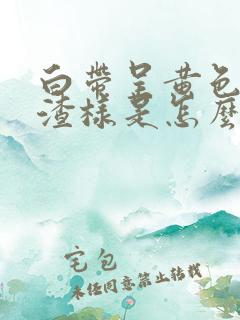 白带呈黄色
渣样是怎麼
宅包
未经同意禁止转载